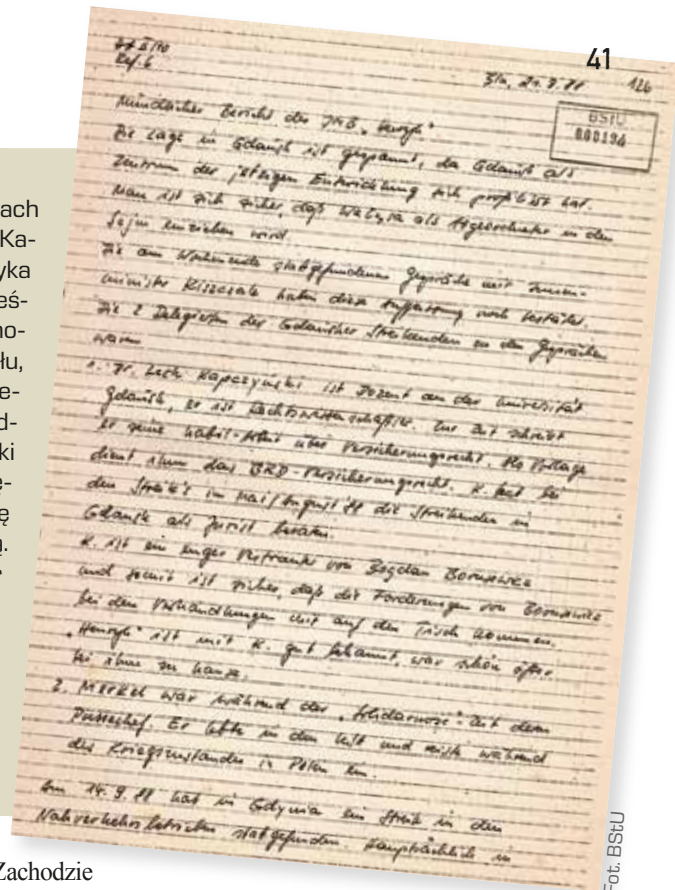 41
126
Ref. 6
Bln, 21.9.88
BStU
000194
Mündlicher Bericht des IMB "Henryk"
Die Lage in Gdańsk ist gespannt, da Gdańsk als
Zentrum der jetzigen Entwicklung sich profiliert hat.
Man ist sich sicher, daß Wałęsa als Abgeordneter in den
Sejm einziehen wird.
Die am Wochenende stattgefundenen Gespräche mit Innen-
minister Kiszczak haben diese Auffassung noch bestärkt.
Die 2 Delegierten der Gdańsker Streikenden zu den Gesprächen
waren
1. Dr. Lech Kapczyński ist Dozent an der Universität
Gdańsk, er ist Rechtswissenschaftler. Zur Zeit schreibt
er seine Habil-Arbeit über Versicherungsrecht. Als Vorlage
dient ihm das BRD-Versicherungsrecht. K. hat bei
den Streik's im Mai/August 88 die Streikenden in
Gdańsk als Jurist beraten.
K. ist ein enger Vertrauter von Bogdan Borusewicz
und somit ist sicher, daß die Forderungen von Borusewicz
bei den Verhandlungen mit auf den Tisch kommen.
"Henryk" ist mit K. gut bekannt, war schon öfter
bei ihm zu Hause.
2. Merkel war während der "Solidarność"-Zeit deren
Pressechef. Er lebte in den und reiste während
des Kriegszustandes in Polen ein.
Am 14.9.88 hat in Gdynia ein Streik in den
Nahverkehrsbetrieben stattgefunden. Hauptsächlich in
ach
Ka-
yka
eś-
no-
łu,
e-
d-
ki
ę-
ę
ą.
Zachodzie
Fot. BStU